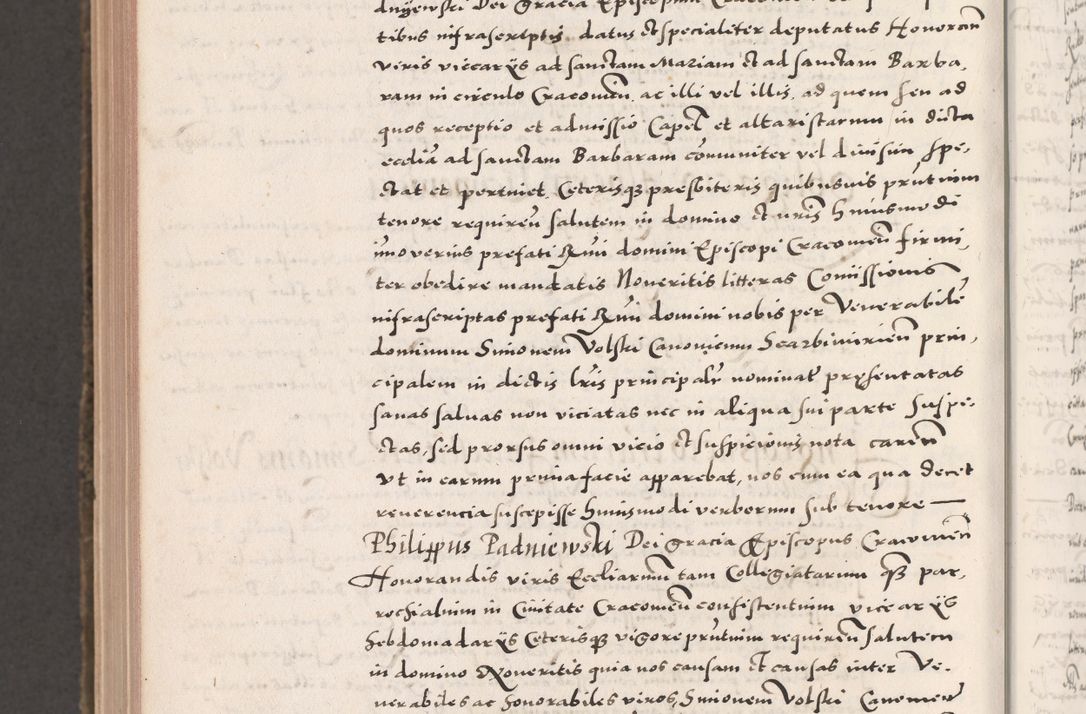 dnÿewski Dei Gracia Episcopum
tibus infrascriptis datus et specialiter deputatus Honoran
viris vicarÿs ad sanctam Mariam et ad sanctam Barba,
ram in circulo Cracovien, ac illi vel illis, ad quem seu ad
quos receptio et admissio Capel et altaristarum in dicta
ecclia ad sanctam Barbaram comuniter vel divisim spe,
ctat et pertinet. Ceterisq presbiteris quibusvis prntium
tenore requiren salutem in domino et nris huiusmodi
imo verius prefati Rmi domini Episcopi Cracovien firmi,
ter obedire mandatis Noveritis litteras Comissionis
infrascriptas prefati Rmi domini nobis per Venerabile
dominum Simonem Volski Canonicum Scarbimirien prin,
cipalem in dictis lris principalr nominat presentatas
sanas salvas non viciatas nec in aliqua sui parte suspe,
ctas, sed prorsus omni vicio et suspicionis nota caren
ut in earum prima facie apparebat, nos cum ea qua decet
reverencia suscepisse huiusmodi verborum sub tenore —
Philippus Padniewski Dei gracia Episcopus Cracovien
Honorandis viris Eccliarum tam Collegiatarum qz par,
rochialium in Civitate Cracovien consistentium vicarÿs
hebdomadarÿs Ceterisq vigore prntium requiren salutem
in domino Noveritis quia nos causam et causas inter Ve,
nerabiles ac honorabiles viros, Simonem Volski Canonicu